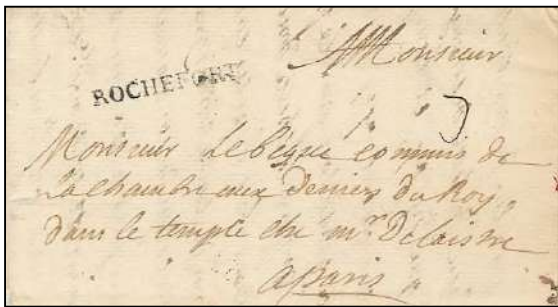 A Monsieur
ROCHEFORT
Monsieur Lebegue commis de
La Chambre aux Deniers du Roy,
dans le temple che mr Delaistre
a paris